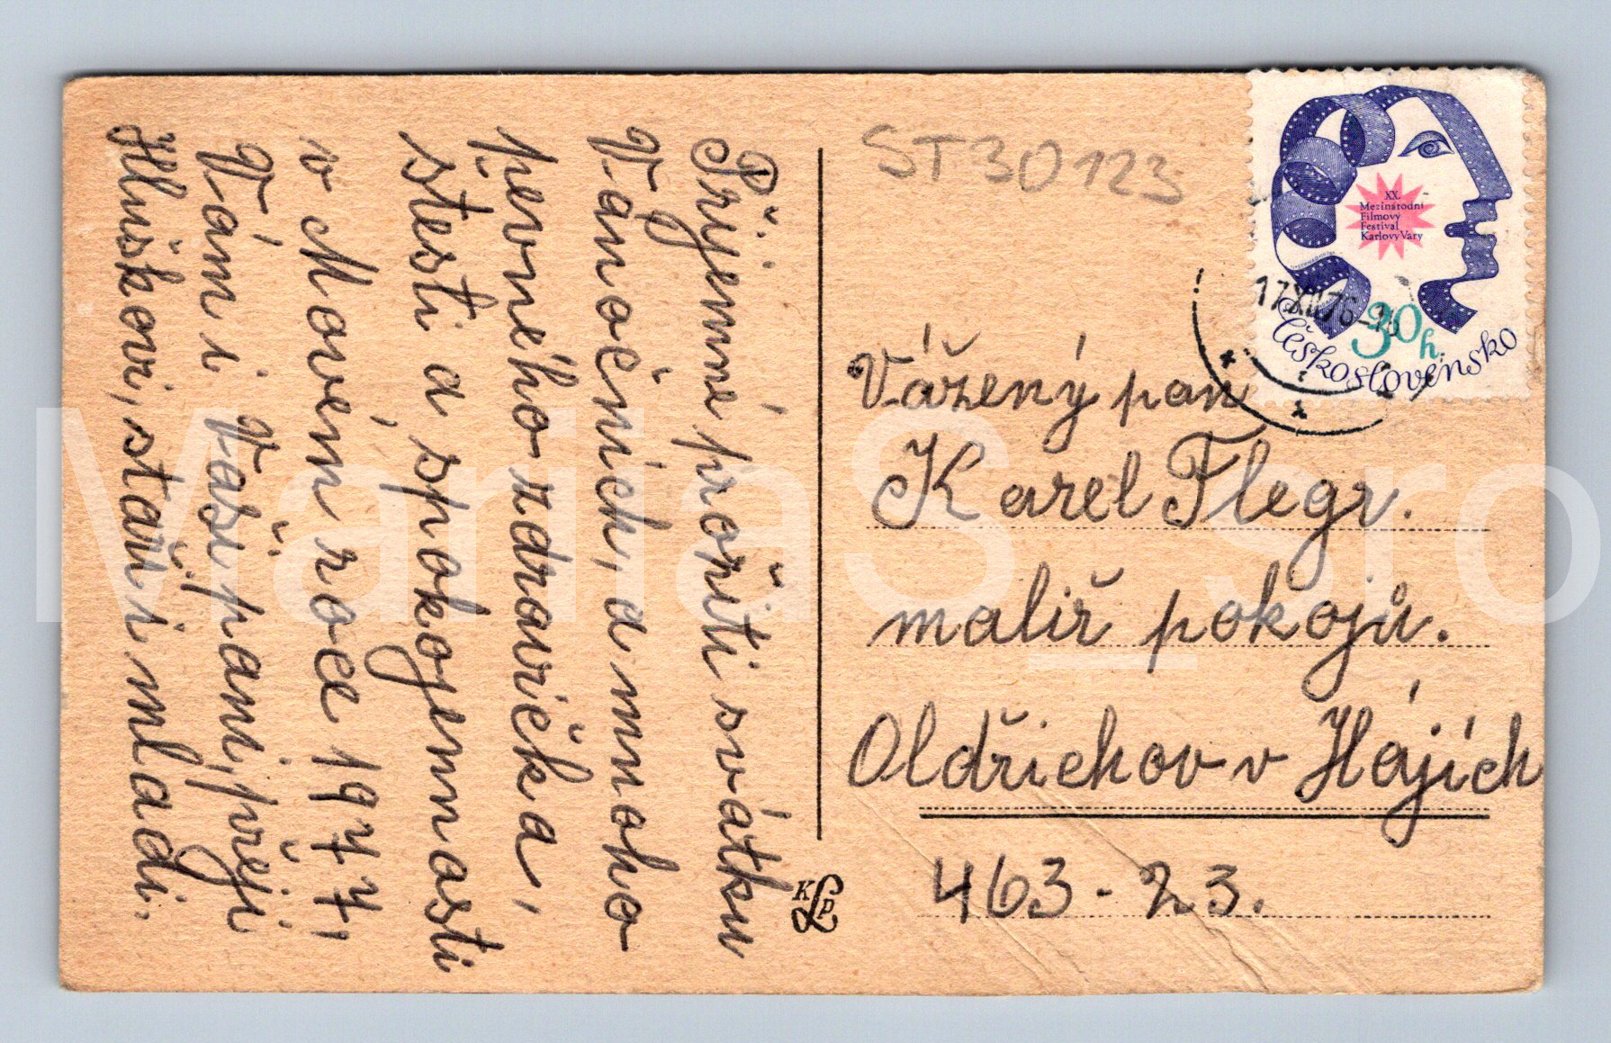 Příjemné prožití svátku
Vánočních, a mnoho
pevného zdravíčka,
štěstí a spokojennosti
v Novém roce 1977,
Vám i Vaší paní, přejí
Hluškovi, staří i mladí.
ST30123
XX.
Mezinárodní
Filmový
Festival
Karlovy Vary
30h.
Československo
17.XII.76-
Vážený pan
Karel Flegr.
malíř pokojů.
Oldřichov v Hájích
463-23.
KLP
MarijaS_sro